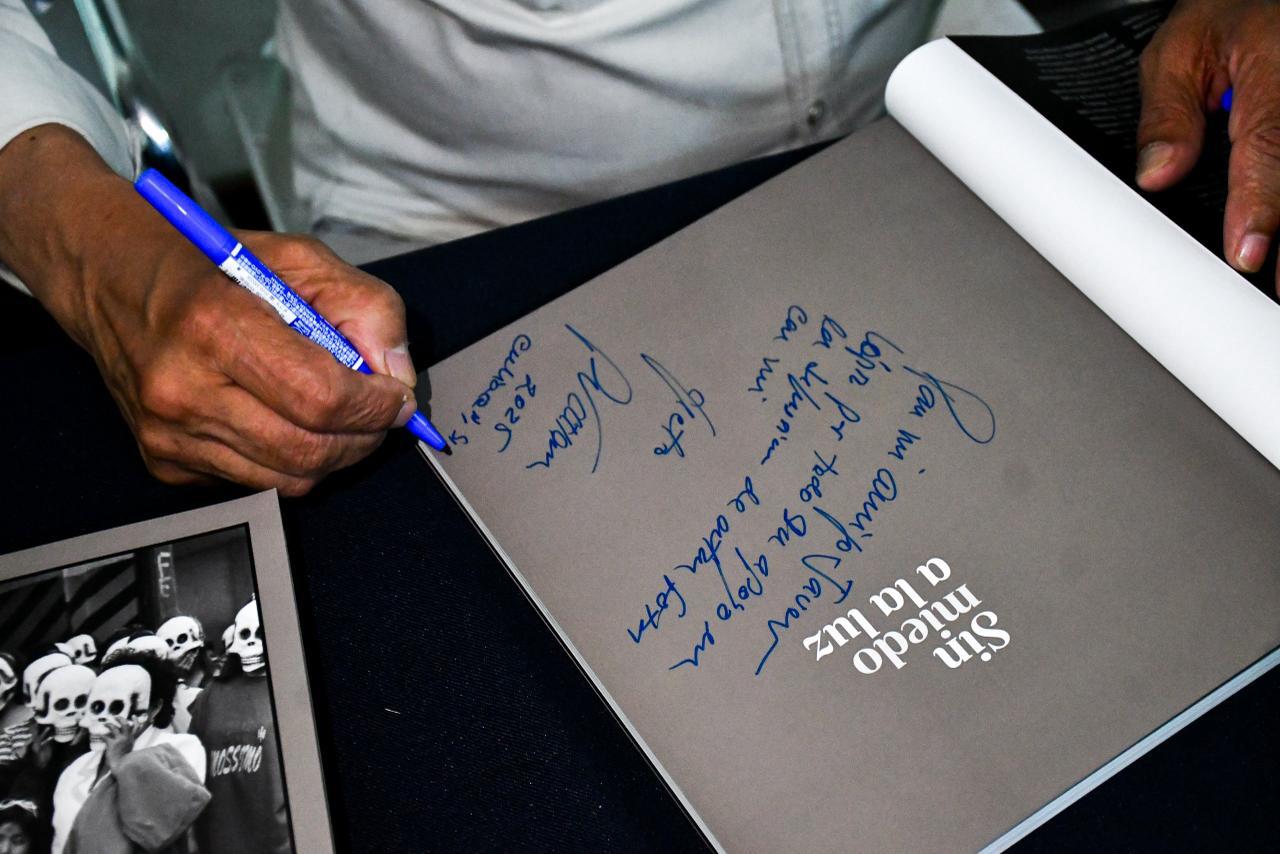 Sin
miedo
a la luz
Para mi amigo Javier
López Por todo su apoyo en
la difusión de estas fotos
con mi
afecto
2025
Culiacán, Si
MOSSIMO